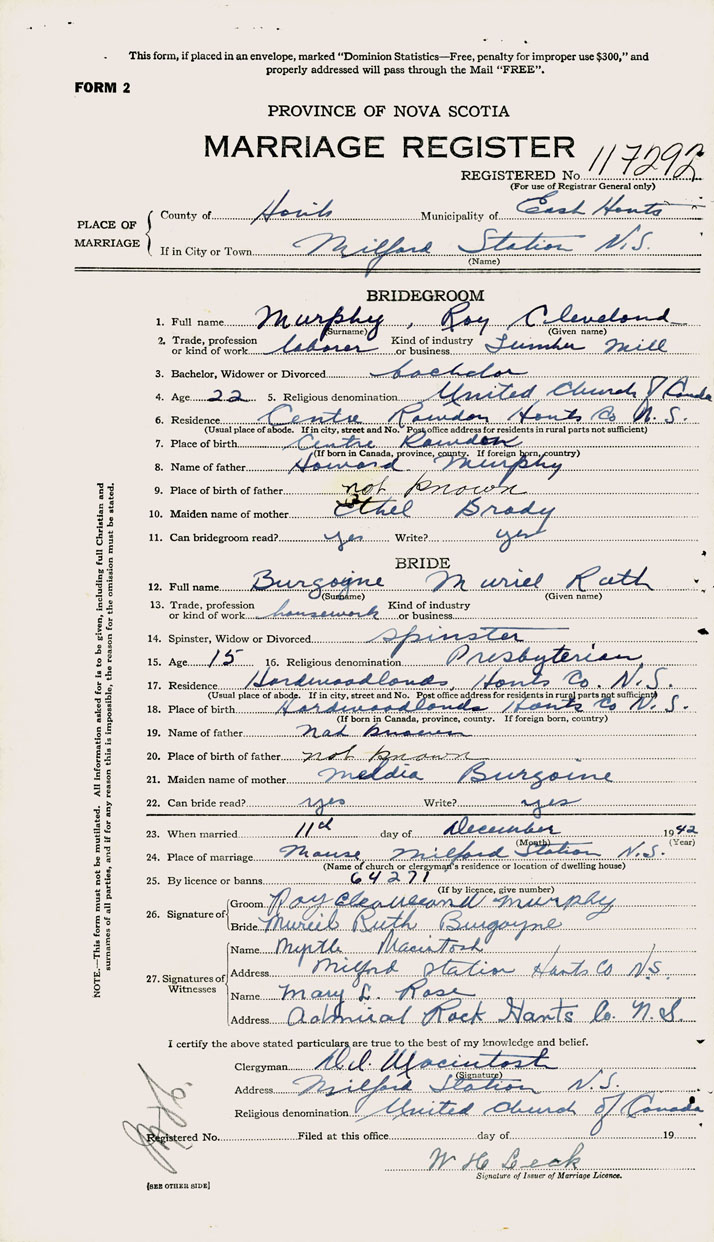 This form, if placed in an envelope, marked "Dominion Statistics—Free, penalty for improper use $300," and
properly addressed will pass through the Mail "FREE".
FORM 2
PROVINCE OF NOVA SCOTIA
MARRIAGE REGISTER
REGISTERED No. 117292
(For use of Registrar General only)
PLACE OF MARRIAGE
County of Hants Municipality of East Hants
If in City or Town Milford Station N.S.
(Name)
BRIDEGROOM
1. Full name Murphy, Roy Cleveland
(Surname) (Given name)
2. Trade, profession or kind of work laborer Kind of industry or business Lumber Mill
3. Bachelor, Widower or Divorced bachelor
4. Age 22 5. Religious denomination United Church of Canada
6. Residence Centre Rawdon Hants Co N.S.
(Usual place of abode. If in city, street and No. Post office address for residents in rural parts not sufficient)
7. Place of birth Centre Rawdon
(If born in Canada, province, county. If foreign born, country)
8. Name of father Howard Murphy
9. Place of birth of father not known
10. Maiden name of mother Ethel Brady
11. Can bridegroom read? yes Write? yes
BRIDE
12. Full name Burgoyne Muriel Ruth
(Surname) (Given name)
13. Trade, profession or kind of work housework Kind of industry or business
14. Spinster, Widow or Divorced spinster
15. Age 15 16. Religious denomination Presbyterian
17. Residence Hardwoodlands, Hants Co. N.S.
(Usual place of abode. If in city, street and No. Post office address for residents in rural parts not sufficient)
18. Place of birth Hardwoodlands Hants Co N.S.
(If born in Canada, province, county. If foreign born, country)
19. Name of father not known
20. Place of birth of father not known
21. Maiden name of mother Meldia Burgoine
22. Can bride read? yes Write? yes
23. When married 11th day of December 1942
(Month) (Year)
24. Place of marriage Manse Milford Station N.S.
(Name of church or clergyman's residence or location of dwelling house)
25. By licence or banns 64271
(If by licence, give number)
26. Signature of
Groom Roy Cleaveland Murphy
Bride Muriel Ruth Burgoyne
27. Signatures of Witnesses
Name Myrtle Macintosh
Address Milford Station Hants Co N.S.
Name Mary L. Rose
Address Admiral Rock Hants Co. N.S.
I certify the above stated particulars are true to the best of my knowledge and belief.
Clergyman Macintosh
(Signature)
Address Milford Station N.S.
Religious denomination United Church of Canada
Registered No. Filed at this office day of 19
W H Leck
Signature of Issuer of Marriage Licence.
[SEE OTHER SIDE]
NOTE.—This form must not be mutilated. All information asked for is to be given, including full Christian and
surnames of all parties, and if for any reason this is impossible, the reason for the omission must be stated.